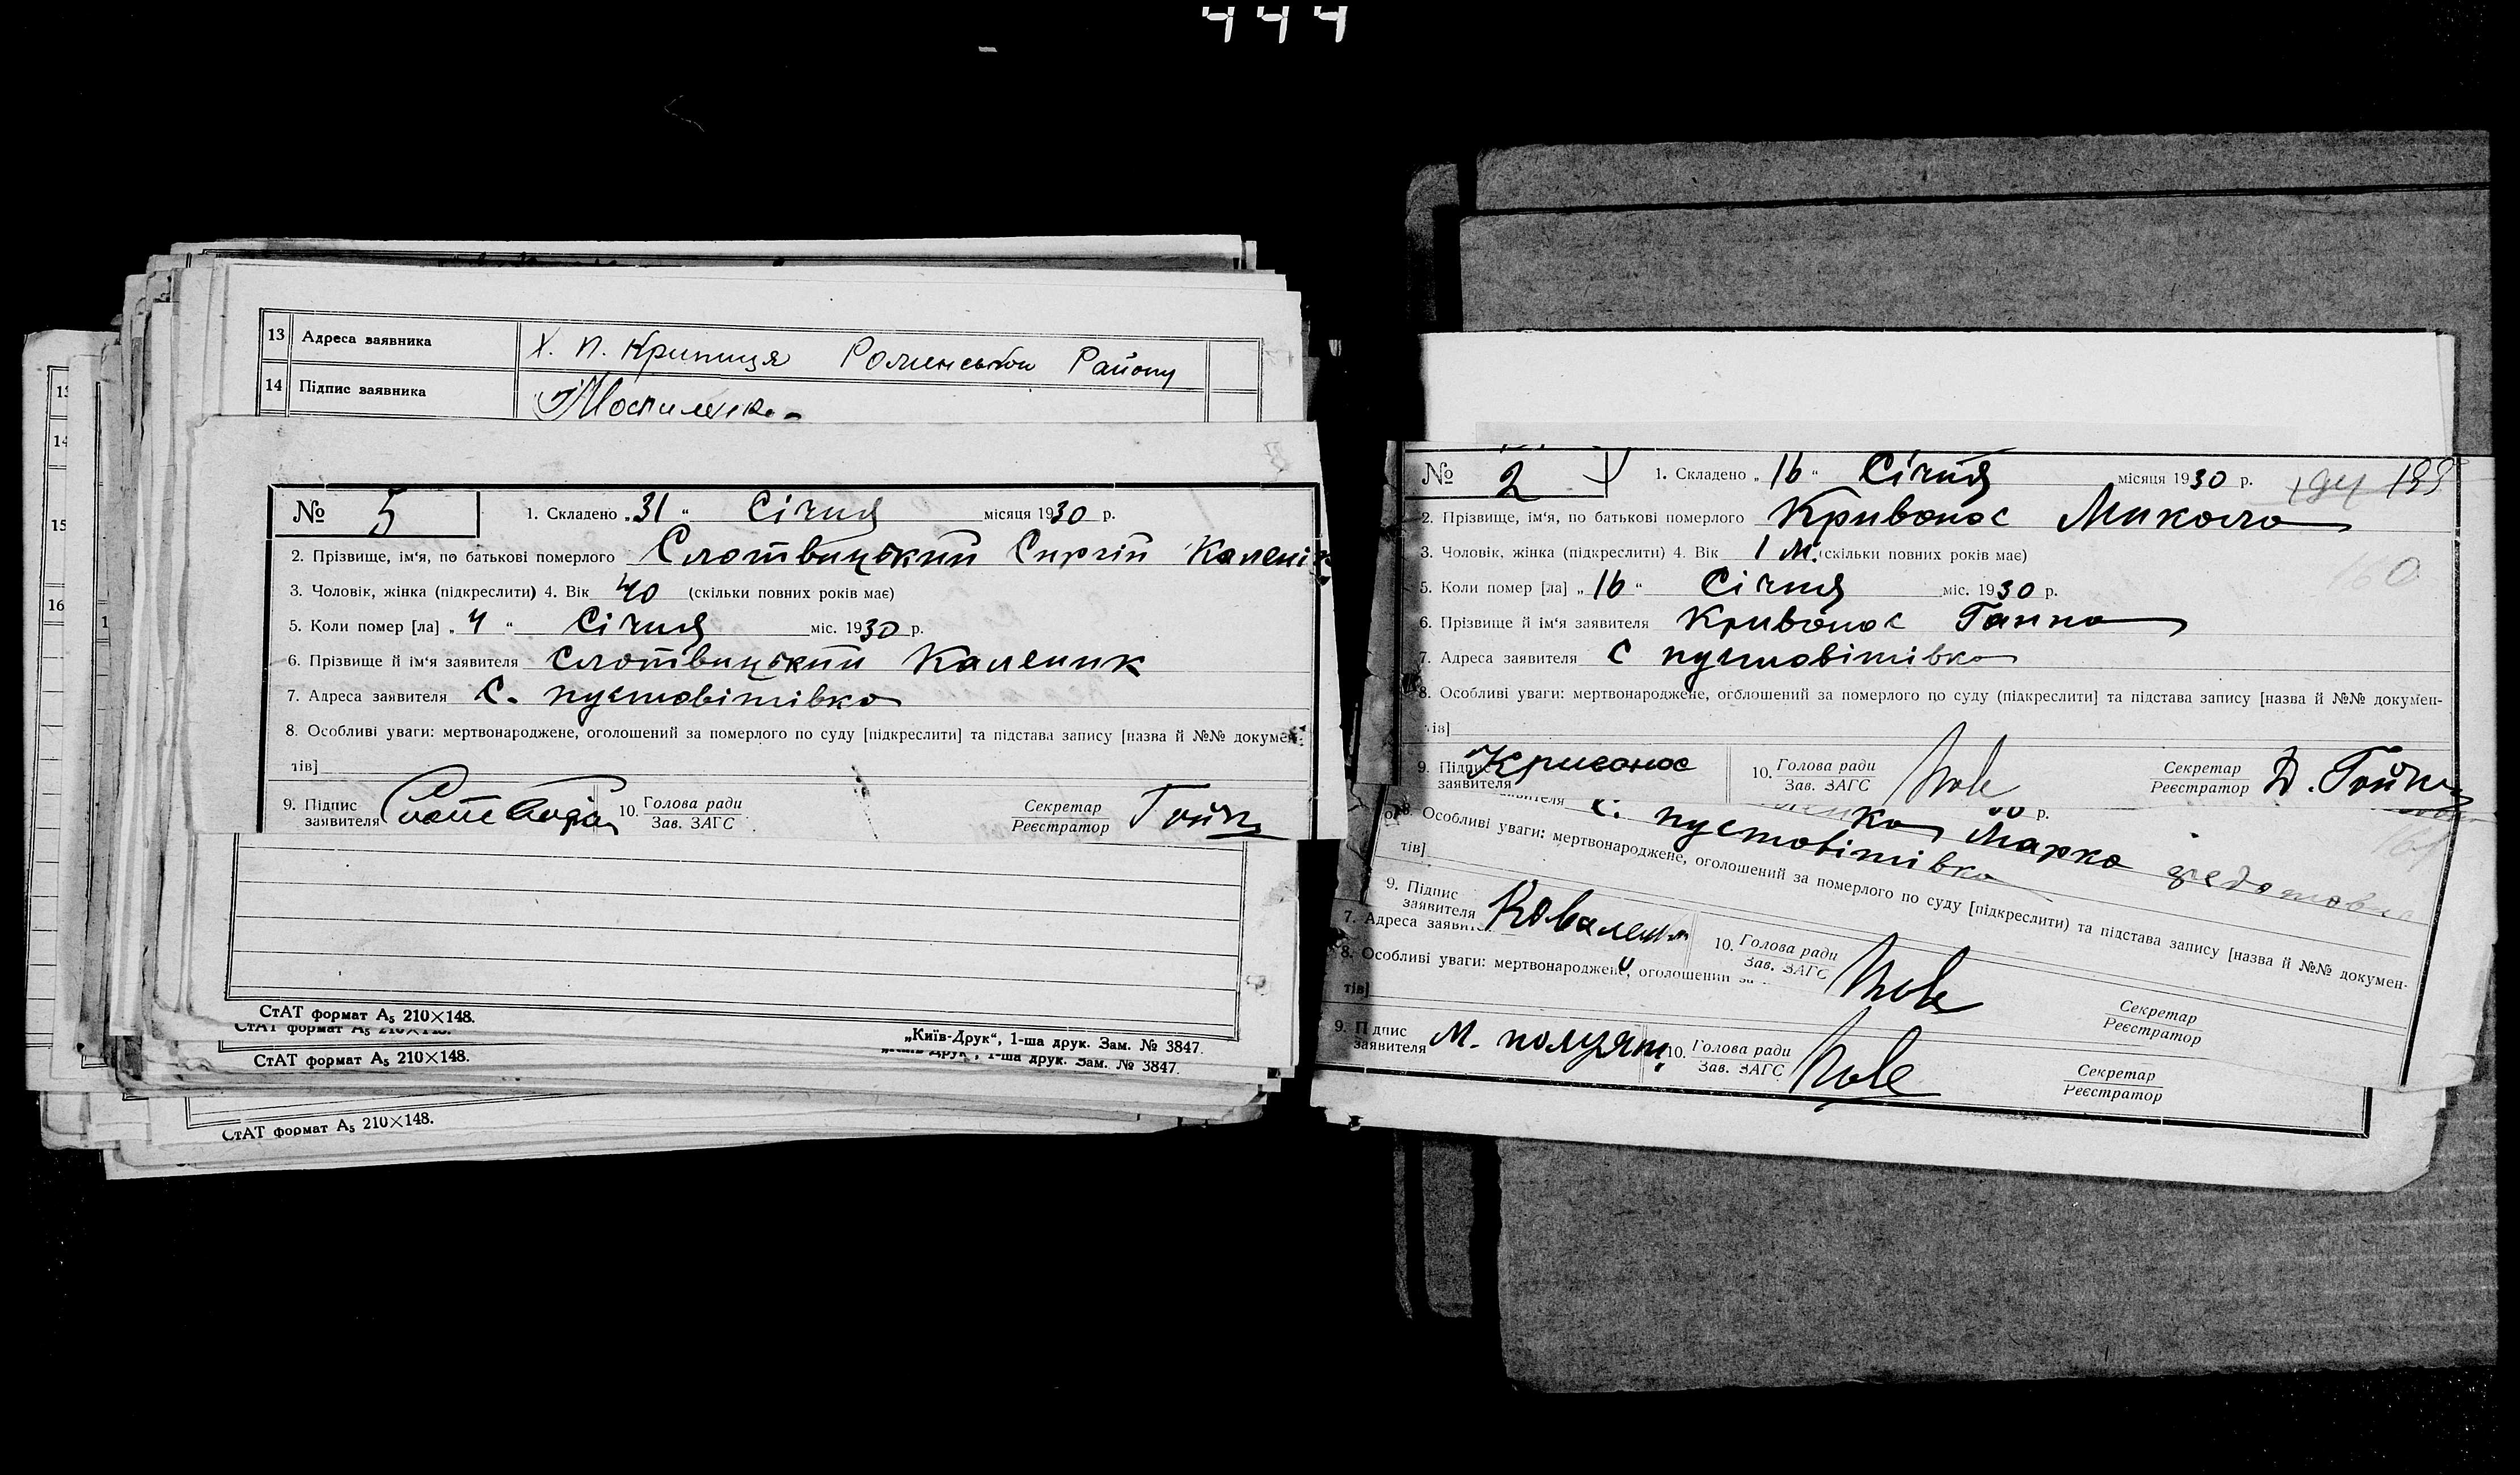 444
13 Адреса заявника Х. П. Криниця Роменської Району
14 Підпис заявника
13
14
15
16
№ 5 1. Складено „31“ Січня місяця 1930 р.
2. Прізвище, ім'я, по батькові померлого Слотвицький Сиргій Калені
3. Чоловік, жінка (підкреслити) 4. Вік 40 (скільки повних років має)
5. Коли помер [ла] „4“ Січня міс. 1930 р.
6. Прізвище й ім'я заявителя Слотвицький Каленик
7. Адреса заявителя С. пустовітівка
8. Особливі уваги: мертвонароджене, оголошений за померлого по суду [підкреслити] та підстава запису [назва й №№ докумен-
тів]
9. Підпис заявителя 10. Голова ради Зав. ЗАГС Секретар Реєстратор
СтАТ формат А₅ 210×148.
СтАТ формат А₅ 210×148.
„Київ-Друк“, 1-ша друк. Зам. № 3847.
СтАТ формат А₅ 210×148.
„Київ-Друк“, 1-ша друк. Зам. № 3847.
СтАТ формат А₅ 210×148.
№ 2 1. Складено „16“ Січня місяця 1930 р.
2. Прізвище, ім'я, по батькові померлого Кривонос Микола
3. Чоловік, жінка (підкреслити) 4. Вік 1 м. (скільки повних років має)
160
5. Коли помер [ла] „16“ Січня міс. 1930 р.
6. Прізвище й ім'я заявителя Кривонос Ганна
7. Адреса заявителя С пустовітівка
8. Особливі уваги: мертвонароджене, оголошений за померлого по суду (підкреслити] та підстава запису [назва й №№ докумен-
тів]
9. Підпис заявителя Кривонос 10. Голова ради Зав. ЗАГС Секретар Реєстратор
30 р.
ко Марко
заявителя С. пустовітівка
8. Особливі уваги: мертвонароджене, оголошений за померлого по суду [підкреслити) та підстава запису [назва й №№ докумен-
тів]
9. Підпис заявителя 10. Голова ради Зав. ЗАГС Секретар Реєстратор
7. Адреса заявит
8. Особливі уваги: мертвонароджен, оголошений за
тів]
9. Підпис заявителя 10. Голова ради Зав. ЗАГС Секретар Реєстратор